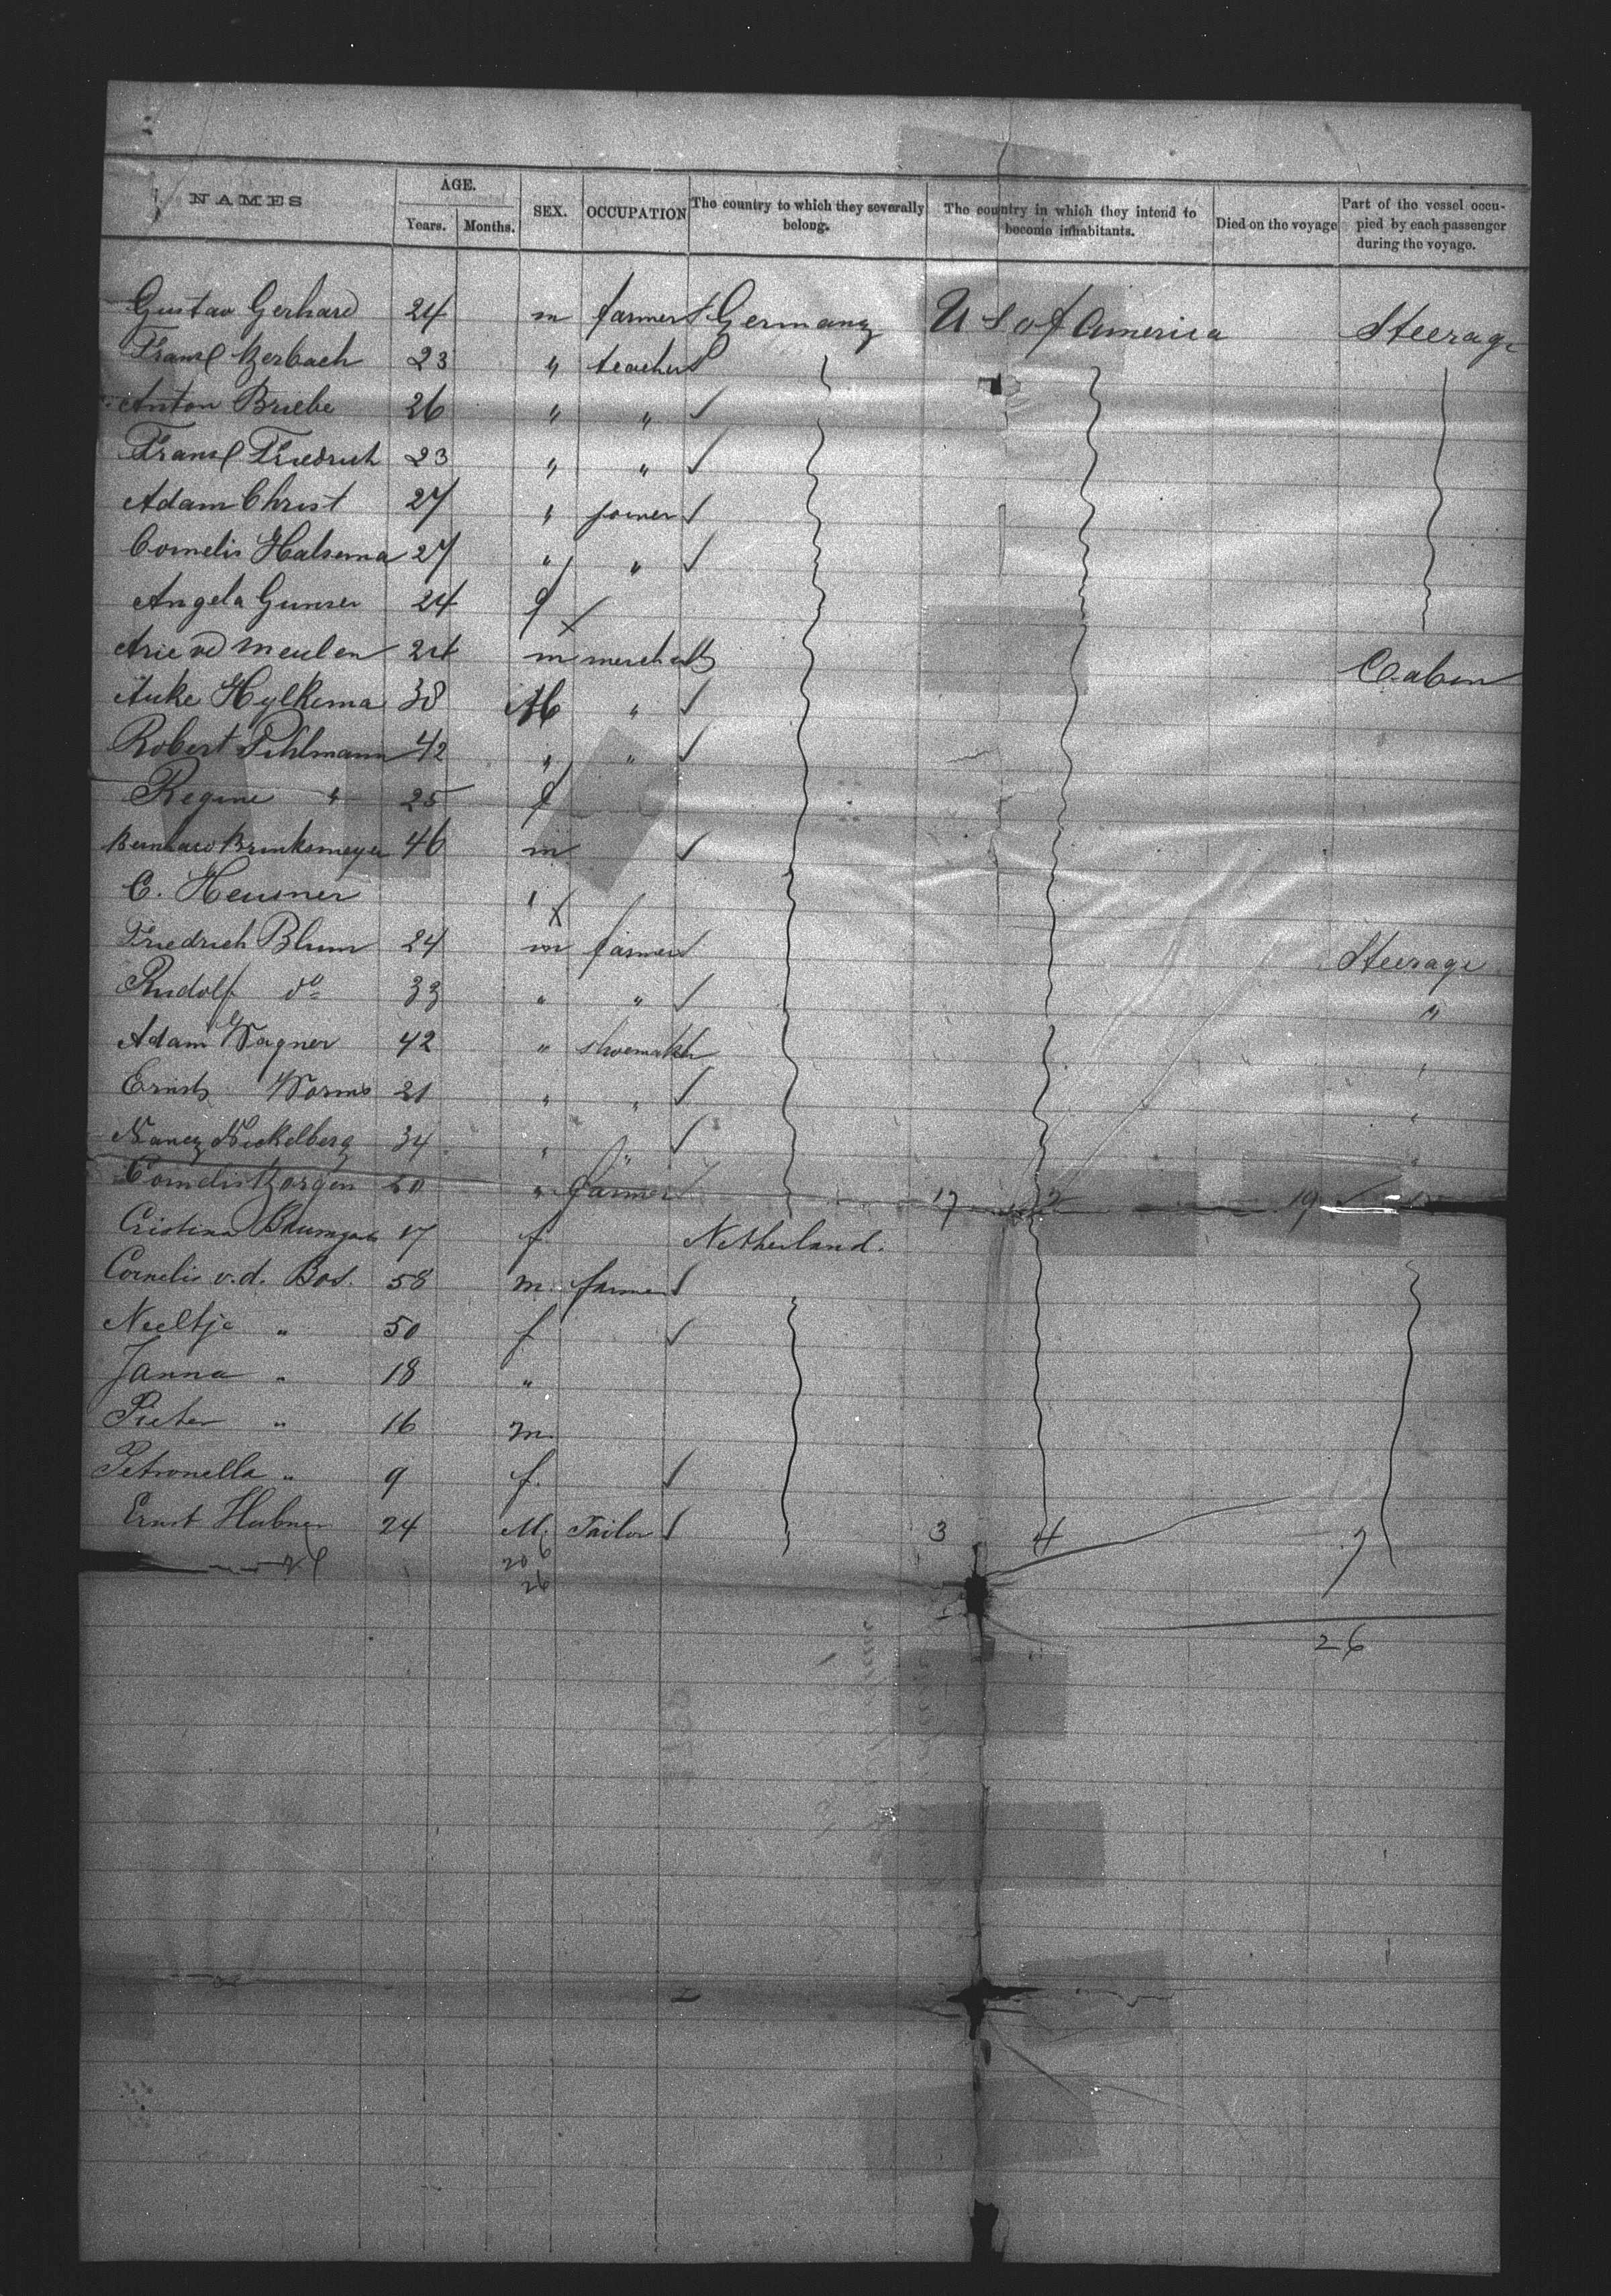 NAMES AGE. Years. Months. SEX. OCCUPATION The country to which they severally belong. The country in which they intend to become inhabitants. Died on the voyage Part of the vessel occupied by each passenger during the voyage.
Gustav Gerhard 24 m farmer Germany U S of America Steerage
Franz Zerbach 23 " teacher
Anton Briebe 26 " "
Franz Friedrich 23 " "
Adam Christ 27 " joiner
Cornelis Halsema 27 " "
Angela 24 f
Arie vd Meulen 24 m merchant Cabin
Auke Hylkema 38 M "
Robert Pihlmann 42 " "
Regine " 25 f
Bernhard Brinksmeyer 46 m
C. Heusner "
Friedrich Blum 24 m farmer Steerage
Rudolf do 33 " " "
Adam Wagner 42 " shoemaker "
Ernst Worms 21 " " "
Nanez Nickelberg 34 " " "
Cornelis 20 " farmer 17 2 19
Cristina 17 f Netherland.
Cornelis v.d. Bos. 58 m. farmer
Neeltje " 50 f
Janna " 18 "
Pieter " 16 m.
Petronella " 9 f.
Ernst Hubner 24 M. Tailor 3 4 7
20 6
26
26